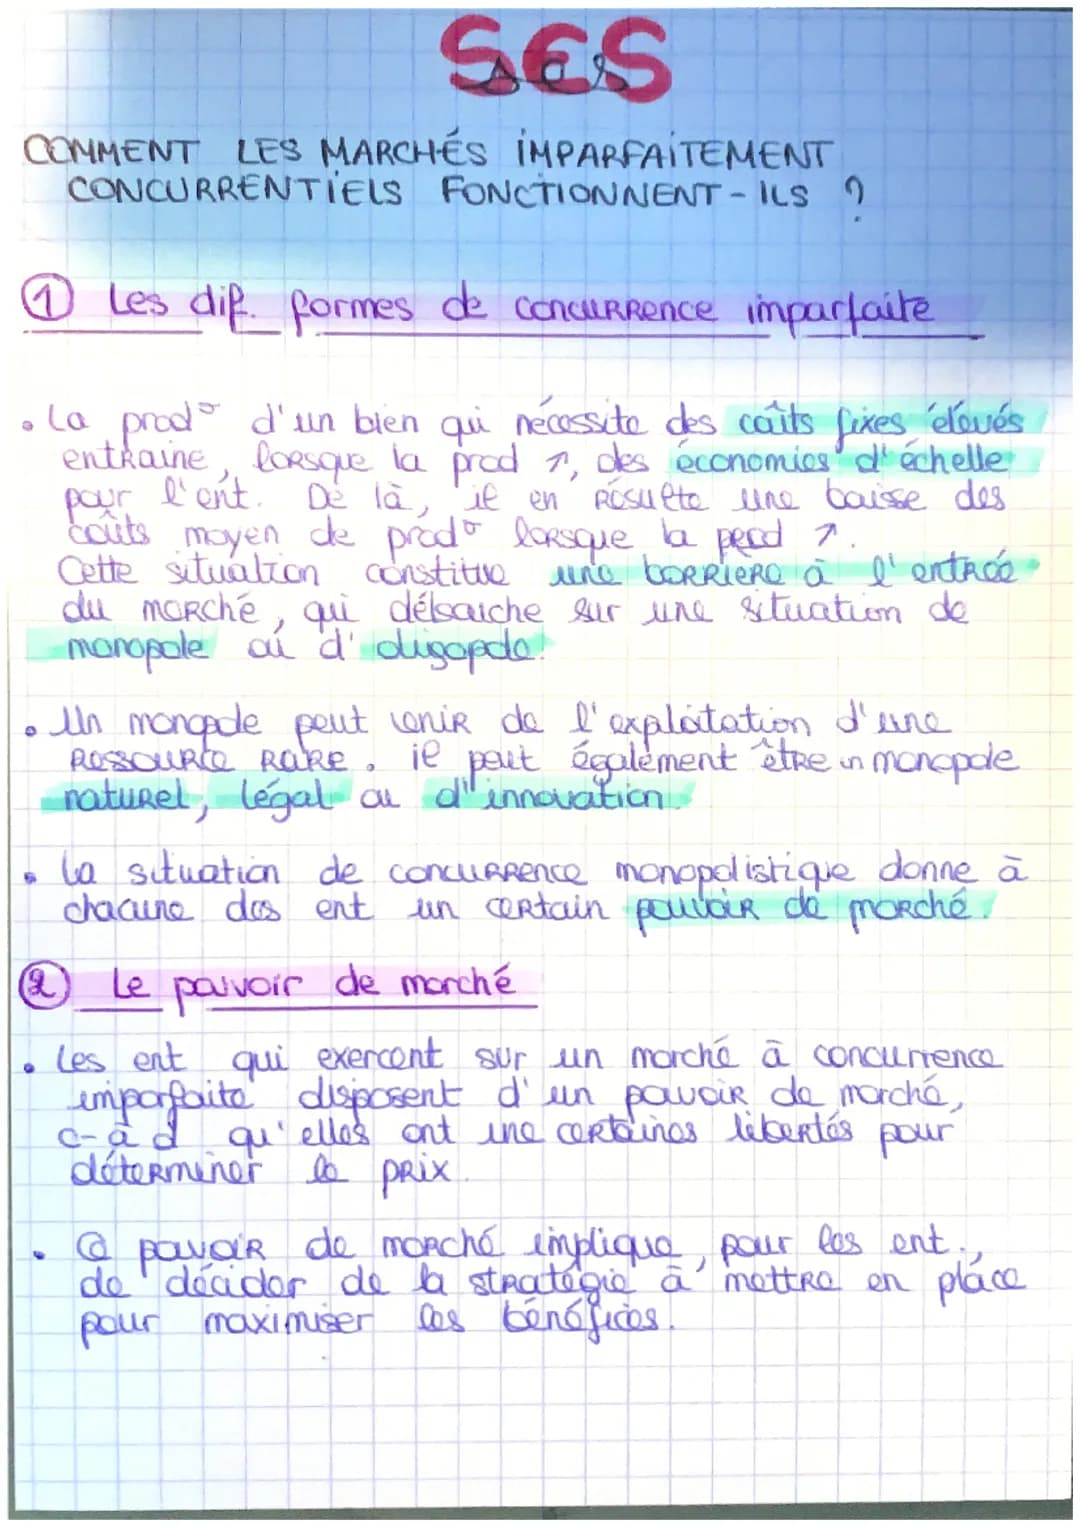 SES
ses
COMMENT LES MARCHÉS IMPARFAITEMENT
CONCURRENTIELS FONCTIONNENT-ILS ?
① Les dif. formes de concurrence imparfaite
• La prod° d'un bien qui nécessite des coûts fixes élevés
entraine, lorsque la prod ↗, des économies d'échelle
pour l'ent. De là, il en résulte une baisse des
coûts moyen de prod° lorsque la prod ↗.
Cette situation constitue une barrière à l'entrée
du marché, qui débouche sur une situation de
monopole ou d'oligopole.
• Un monopole peut venir de l'exploitation d'une
ressource rare. il peut également être un monopole
naturel, légal ou d'innovation.
• La situation de concurrence monopolistique donne à
chacune des ent un certain pouvoir de marché.
② Le pouvoir de marché
• Les ent qui exercent sur un marché à concurrence
imparfaite disposent d'un pouvoir de marché,
c-à d qu'elles ont une certaines libertés pour
déterminer le prix.
• Ce pouvoir de marché implique, pour les ent.,
de décider de la stratégie à mettre en place
pour maximiser les bénéfices.